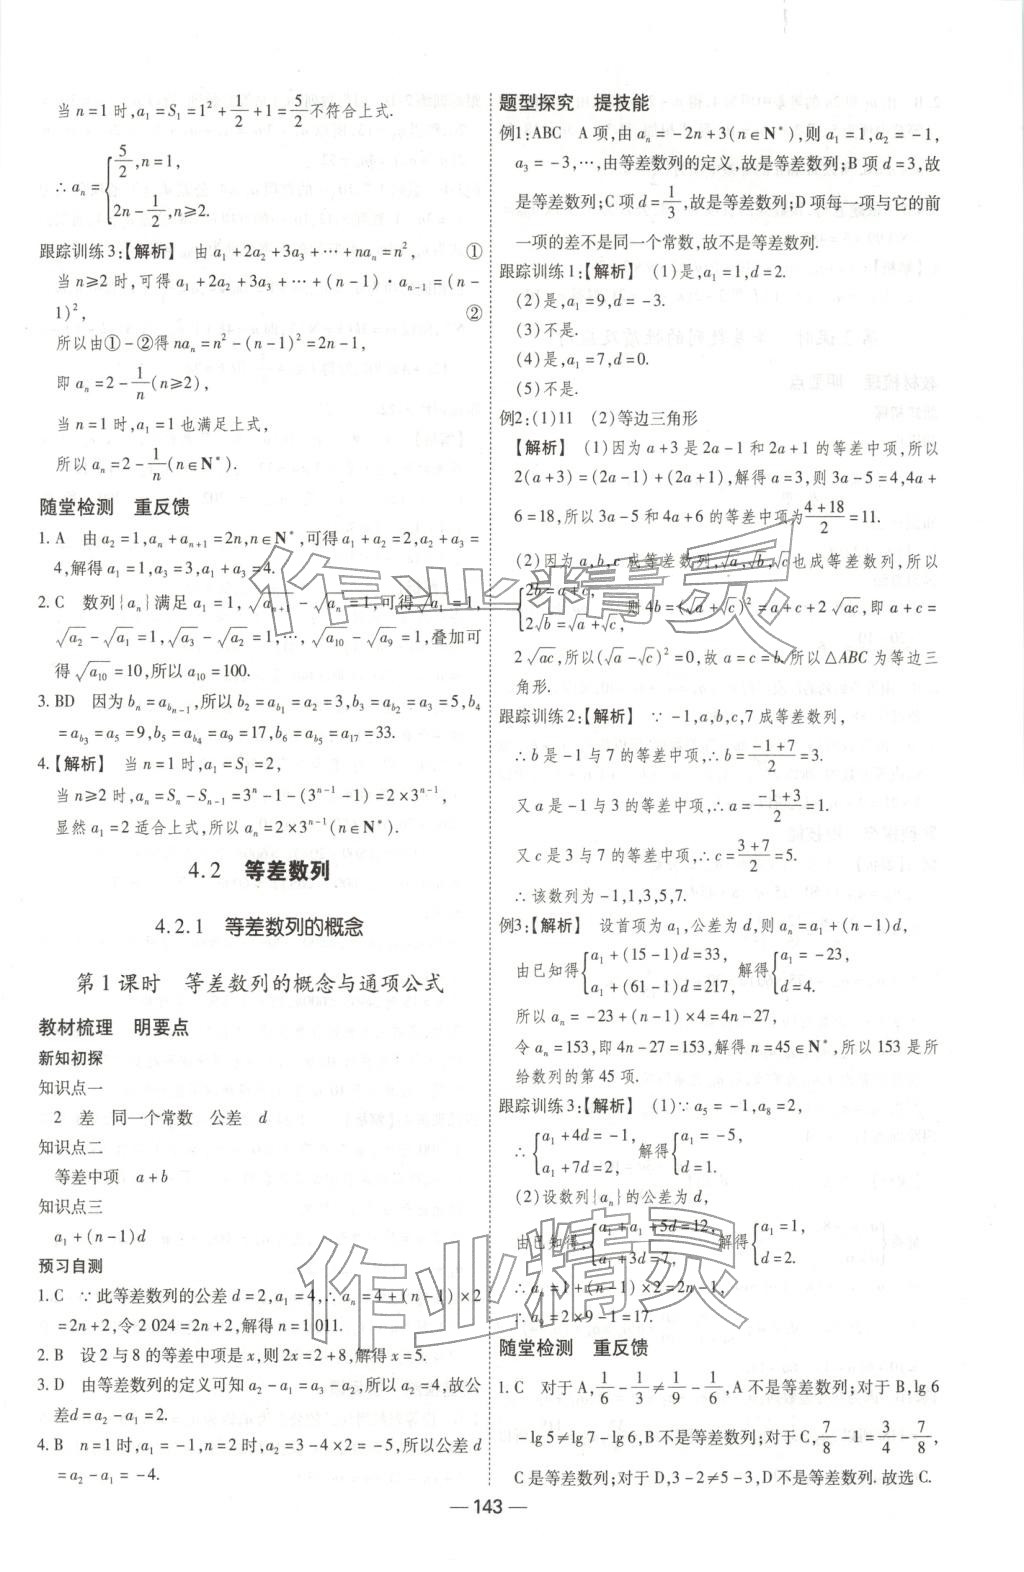 当n=1时,a₁=S₁=1²+1/2+1=5/2不符合上式.
∴aₙ={5/2,n=1,
2n-1/2,n≥2.
跟踪训练3:【解析】 由a₁+2a₂+3a₃+…+naₙ=n², ①
当n≥2时,可得a₁+2a₂+3a₃+…+(n-1)·aₙ₋₁=(n-
1)², ②
所以由①-②得naₙ=n²-(n-1)²=2n-1,
即aₙ=2-1/n(n≥2).
当n=1时,a₁=1也满足上式,
所以aₙ=2-1/n(n∈N*).
随堂检测 重反馈
1. A 由a₂=1,aₙ+aₙ₊₁=2n,n∈N*,可得a₁+a₂=2,a₂+a₃=
4,解得a₁=1,a₂=1,a₃=3.
2. C 数列{aₙ}满足a₁=1,√aₙ₊₁-√aₙ=1,可得√a₁=1,
√a₂-√a₁=1,√a₃-√a₂=1,…,√a₁₀-√a₉=1,叠加可
得√a₁₀=10,所以a₁₀=100.
3. BD 因为bₙ=a_{bₙ₋₁},所以b₂=a_{b₁}=a₂=3,b₃=a_{b₂}=a₃=5,b₄
=a_{b₃}=a₅=9,b₅=a_{b₄}=a₉=17,b₆=a_{b₅}=a₁₇=33.
4.【解析】 当n=1时,a₁=S₁=2,
当n≥2时,aₙ=Sₙ-Sₙ₋₁=3ⁿ-1-(3ⁿ⁻¹-1)=2×3ⁿ⁻¹,
显然a₁=2适合上式,所以aₙ=2×3ⁿ⁻¹(n∈N*).
4.2 等差数列
4.2.1 等差数列的概念
第1课时 等差数列的概念与通项公式
教材梳理 明要点
新知初探
知识点一
2 差 同一个常数 公差 d
知识点二
等差中项 a+b
知识点三
a₁+(n-1)d
预习自测
1. C ∵此等差数列的公差d=2,a₁=4,∴aₙ=4+(n-1)×2
=2n+2,令2 024=2n+2,解得n=1 011.
2. B 设2与8的等差中项是x,则2x=2+8,解得x=5.
3. D 由等差数列的定义可知a₂-a₁=a₃-a₂,所以a=4,故公
差d=a₂-a₁=2.
4. B n=1时,a₁=-1,n=2时,a₂=3-4×2=-5,所以公差d
=a₂-a₁=-4.
题型探究 提技能
例1:ABC A项,由aₙ=-2n+3(n∈N*),则a₁=1,a₂=-1,
a₃=-3,…,由等差数列的定义,故是等差数列;B项d=3,故
是等差数列;C项d=1/3,故是等差数列;D项每一项与它的前
一项的差不是同一个常数,故不是等差数列.
跟踪训练1:【解析】 (1)是,a₁=1,d=2.
(2)是,a₁=9,d=-3.
(3)不是.
(4)是,a₁=7,d=0.
(5)不是.
例2:(1)11 (2)等边三角形
【解析】 (1)因为a+3是2a-1和2a+1的等差中项,所以
2(a+3)=(2a-1)+(2a+1),解得a=3,则3a-5=4,4a+
6=18,所以3a-5和4a+6的等差中项为(4+18)/2=11.
(2)因为a,b,c成等差数列,√a,√b,√c也成等差数列,所以
{2b=a+c,
2√b=√a+√c, 则4b=(√a+√c)²=a+c+2√ac,即a+c=
2√ac,所以(√a-√c)²=0,故a=c=b.所以△ABC为等边三
角形.
跟踪训练2:【解析】 ∵-1,a,b,c,7成等差数列,
∴b是-1与7的等差中项,∴b=(-1+7)/2=3.
又a是-1与3的等差中项,∴a=(-1+3)/2=1.
又c是3与7的等差中项,∴c=(3+7)/2=5.
∴该数列为-1,1,3,5,7.
例3:【解析】 设首项为a₁,公差为d,则aₙ=a₁+(n-1)d,
由已知得{a₁+(15-1)d=33,
a₁+(61-1)d=217, 解得{a₁=-23,
d=4.
所以aₙ=-23+(n-1)×4=4n-27,
令aₙ=153,即4n-27=153,解得n=45∈N*,所以153是所
给数列的第45项.
跟踪训练3:【解析】 (1)∵a₅=-1,a₈=2,
∴{a₁+4d=-1,
a₁+7d=2, 解得{a₁=-5,
d=1.
(2)设数列{aₙ}的公差为d,
由已知得{a₁+a₁+5d=12,
a₁+3d=7, 解得{a₁=1,
d=2.
∴aₙ=1+(n-1)×2=2n-1,
∴a₉=2×9-1=17.
随堂检测 重反馈
1. C 对于A,1/6-1/3≠1/9-1/6,A不是等差数列;对于B,lg 6
-lg 5≠lg 7-lg 6,B不是等差数列;对于C,7/8-1=3/4-7/8,
C是等差数列;对于D,3-2≠5-3,D不是等差数列.故选C.
— 143 —
作业精灵
作业精灵